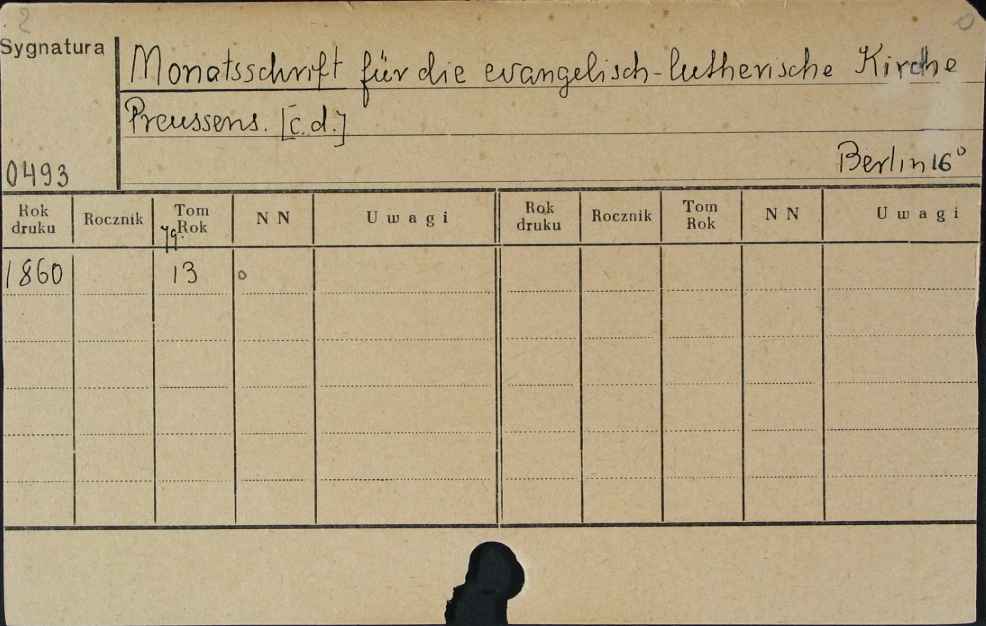 Sygnatura
Monatsschrift für die evangelisch-lutherische Kirche
Preussens. [c.d.]
0493
Berlin 16°
Rok druku Rocznik Tom Rok N N Uwagi Rok druku Rocznik Tom Rok N N Uwagi
Jg.
1860 13 o